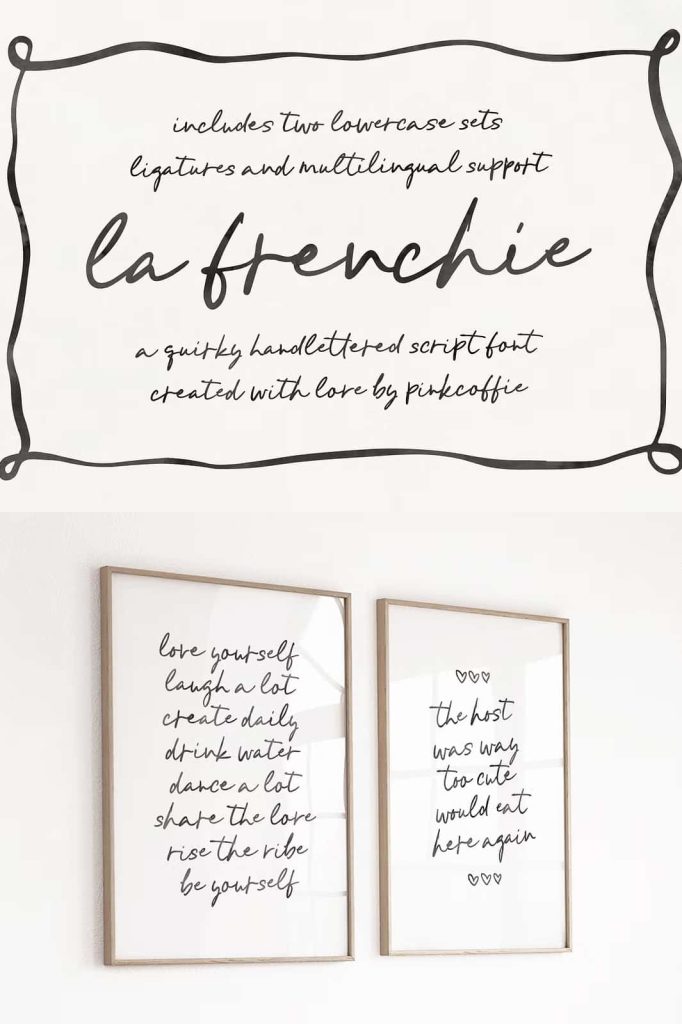 includes two lowercase sets
ligatures and multilingual support
la frenchie
a quirky handlettered script font
created with love by pinkcoffie
love yourself
laugh a lot
create daily
drink water
dance a lot
share the love
rise the ribe
be yourself
the host
was way
too cute
would eat
here again